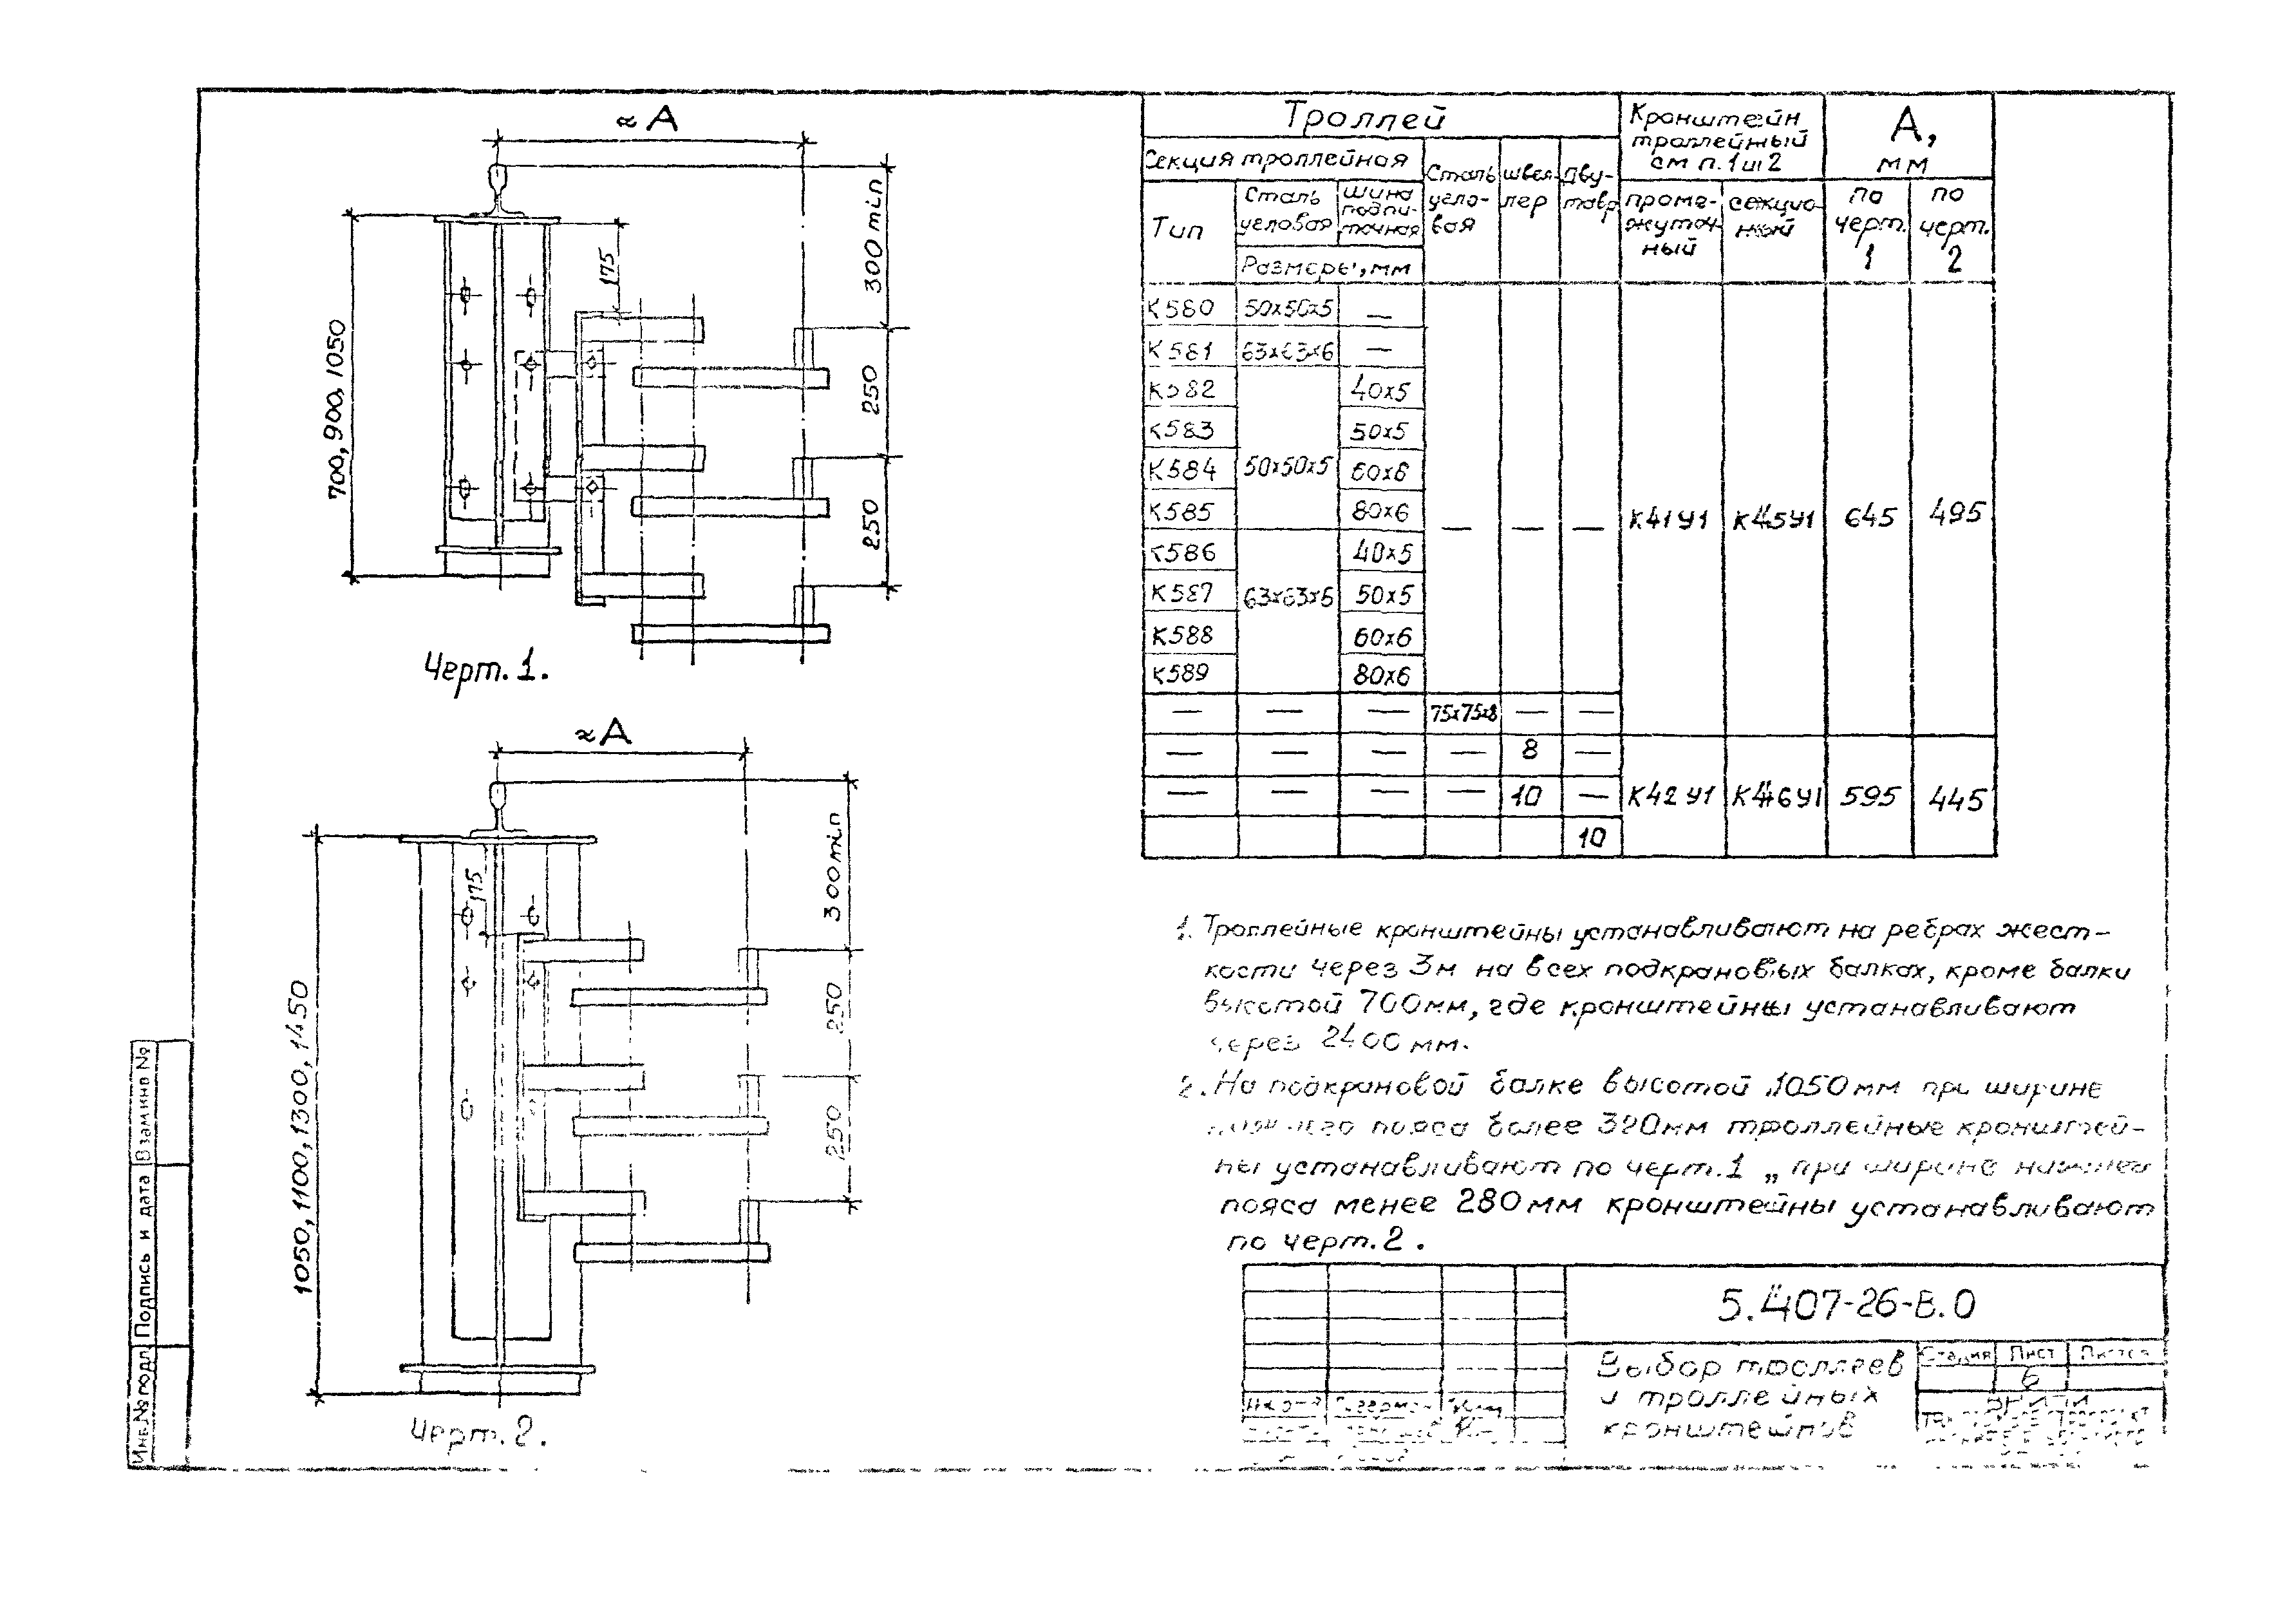 ≈А
300 min
175
250
250
700, 900, 1050
Черт. 1.
≈А
300 min
175
250
250
1050, 1100, 1300, 1450
Черт. 2.
Троллей
Кронштейн
троллейный
см п. 1 и 2
А,
мм
Секция троллейная
Сталь
угло-
вая
швел-
лер
дву-
тавр
Тип
Сталь
угловая
шина
подпи-
точная
Размеры, мм
проме-
жуточ-
ный
секцио-
ный
по
черт.
1
по
черт.
2
К580 50х50х5 —
К581 63х63х6 —
К582 40х5
К583 50х5
К584 50х50х5 60х6
К585 80х6 — — — К41У1 К45У1 645 495
К586 40х5
К587 63х63х6 50х5
К588 60х6
К589 80х6
— — — 75х75х8 — —
— — — — 8 —
— — — — 10 — К42У1 К46У1 595 445
10
1. Троллейные кронштейны устанавливают на ребрах жест-
кости через 3м на всех подкрановых балках, кроме балки
высотой 700мм, где кронштейны устанавливают
через 2400 мм.
2. На подкрановой балке высотой 1050мм при ширине
пояса более 320мм троллейные кронштей-
ны устанавливают по черт. 1 „ при ширине нижнего
пояса менее 280 мм кронштейны устанавливают
по черт. 2.
5.407-26-В.0
Выбор троллеев
и троллейных
кронштейнов
Стадия Лист Листов
6
ВНИПИ
Взам инв №
Подпись и дата
Инв. № подл